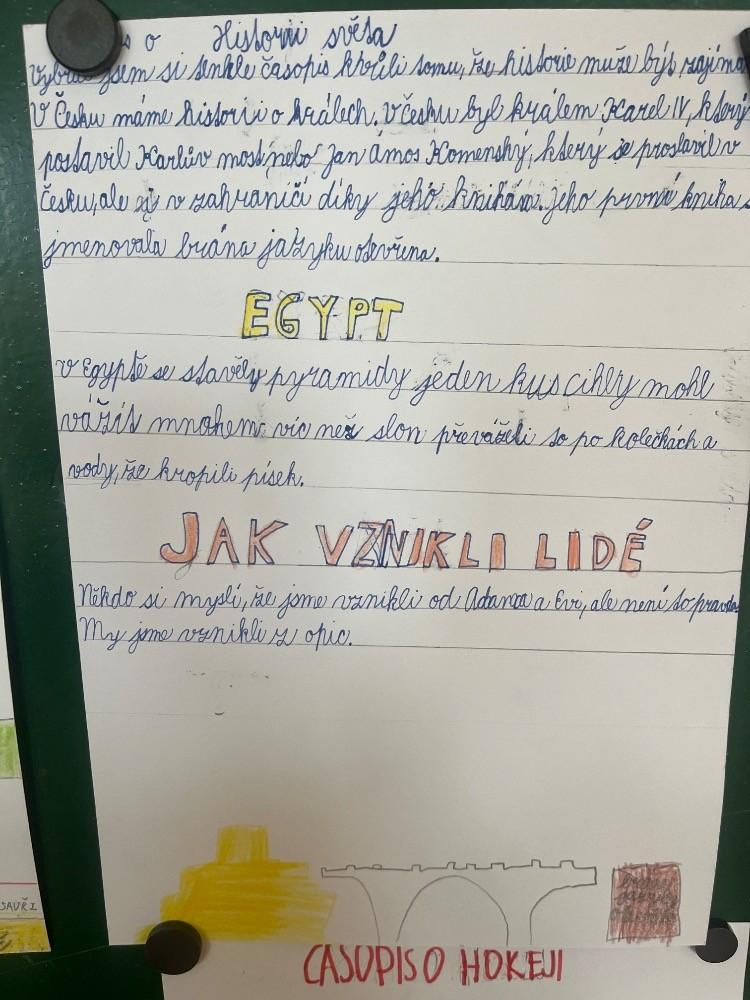 s o Historii světa
vybral jsem si tenhle časopis kůli tomu, že historie muže být zajíma
V Česku máme historii o králech. V česku byl králem Karel IV, který
postavil Karlův most nebo Jan Ámos Komenský, který se proslavil v
česku, ale i v zahraničí díky jeho knihám. jeho první kniha s
jmenovala brána jazyku otevřena.
EGYPT
v Egyptě se stavěly pyramidy jeden kus cihly mohl
vážit mnohem víc než slon převáželi to po kolečkách a
vody, že kropili písek.
JAK VZNIKLI LIDÉ
Někdo si myslí, že jsme vznikli od Adama a Evi, ale není to pravda
My jsme vznikli z opic.
SAUŘI
ČASOPIS O HOKEJI